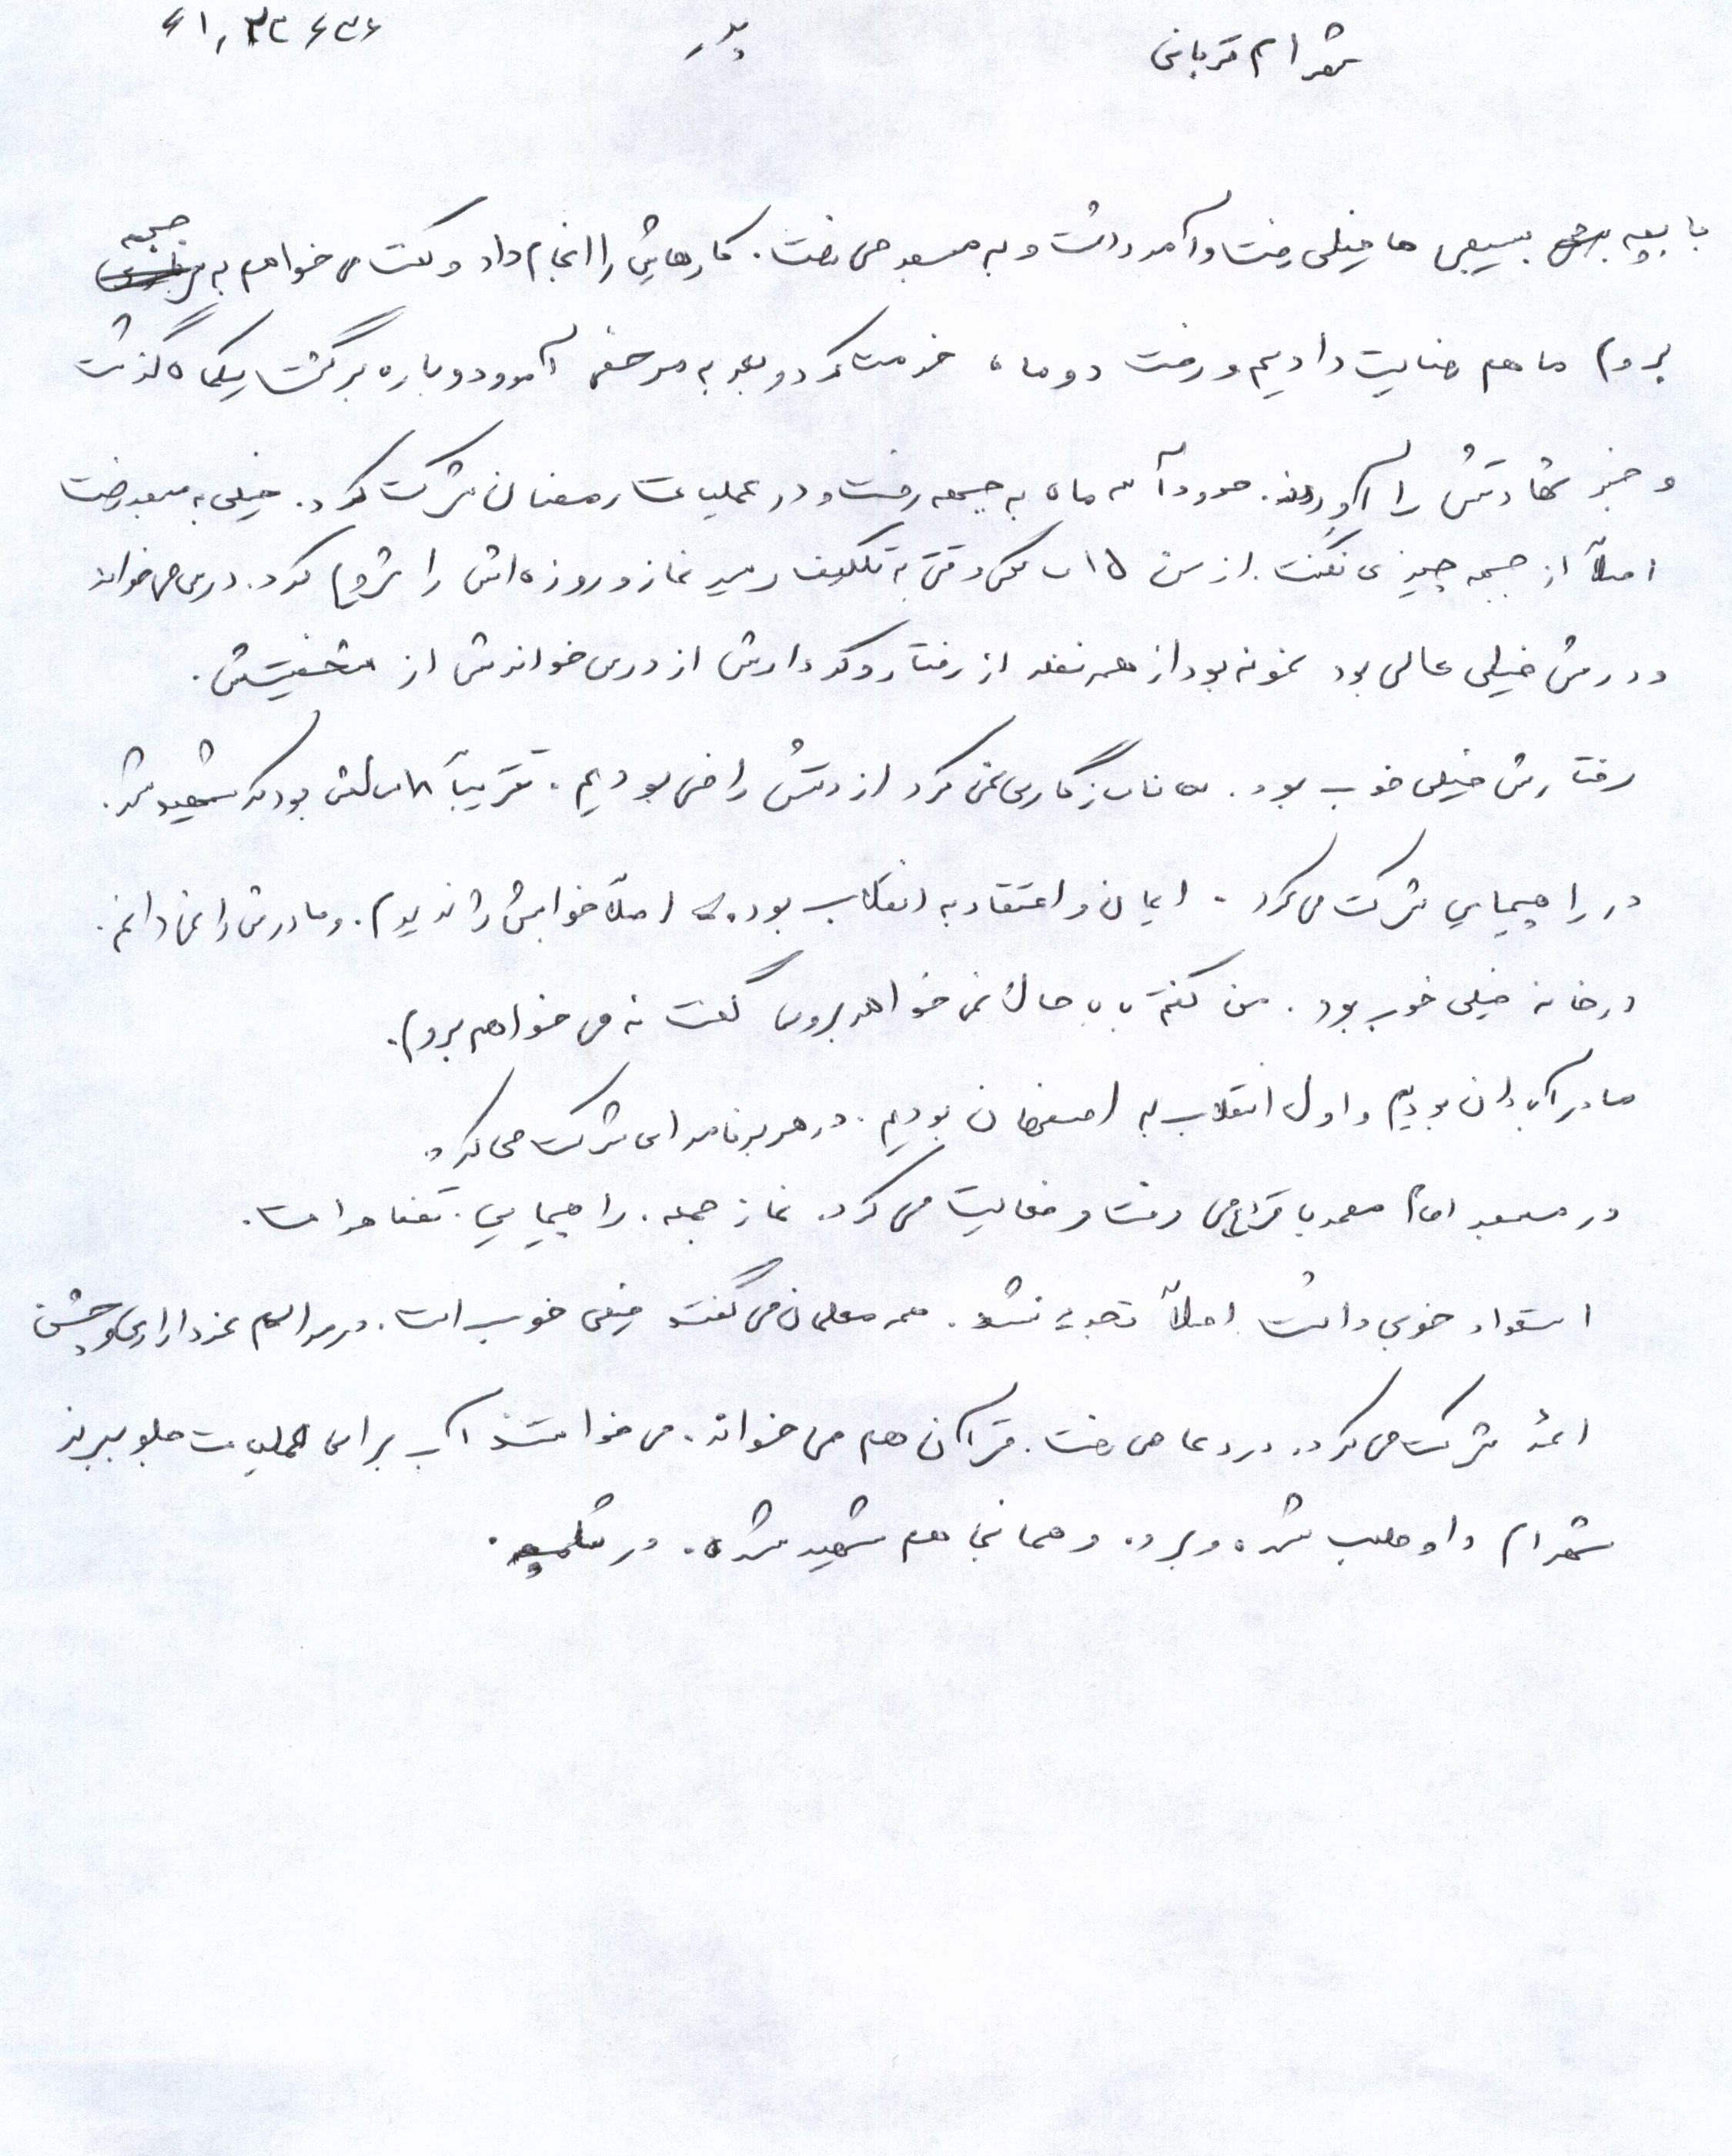 شهرام قربانی پدر
با بچه بسیجی ها خیلی رفت و آمد داشت و به مسجد می رفت. کارهایش را انجام داد و گفت می خواهم به جبهه
بروم ما هم رضایت دادیم و رفت دو ماه خدمت کرد و بعد به مرخصی آمد و دوباره برگشت یکماه گذشت
و خبر شهادتش را آوردند. حدوداً سه ماه به جبهه رفت و در عملیات رمضان شرکت کرد. خیلی به مسجد رفت
اصلاً از جبهه چیزی نگفت. از سن ۱۵ سالگی وقتی به تکلیف رسید نماز و روزه اش را شروع کرد. درس می خواند
و درسش خیلی عالی بود نمونه بود از همه نظر از رفتار و کردارش از درس خواندنش از شخصیتش.
رفتارش خیلی خوب بود. ناسازگاری نمی کرد از دستش راضی بودیم. تقریباً ۱۸ سالش بود که شهید شد.
در راهپیمایی شرکت می کرد. ایمان و اعتقاد به انقلاب بود. اصلاً خوابش را ندیدم. و مادرش را نمی دانم.
در خانه خیلی خوب بود. من گفتم بابا حالا نمی خواهد بروی گفت نه می خواهم بروم.
ما در آبادان بودیم و اول انقلاب به اصفهان بودیم. در هر برنامه ای شرکت می کرد.
در مسجد امام محمد باقر (ع) می رفت و فعالیت می کرد. نماز جمعه. راهپیمایی.
استعداد خوبی داشت اصلاً تجدید نشد. همه معلمان می گفتند خیلی خوب است. در مراسم عزاداری و جشن
ائمه شرکت می کرد. در دعا می رفت. قرآن هم می خواند. می خواستند آب برای عملیات جلو ببرند
شهرام داوطلب شده و برد. و همانجا هم شهید شده. در شلمچه.